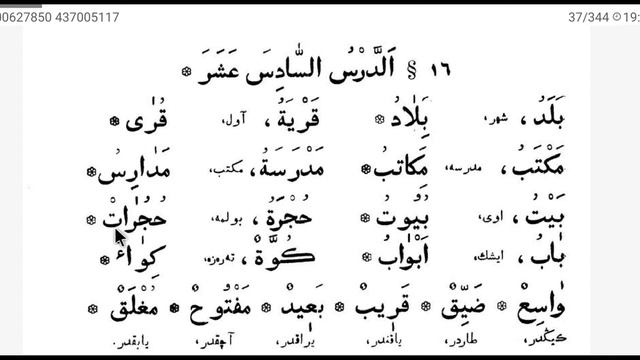 00627850 437005117 37/344 19:
١٦ § اَلدَّرْسُ السَّادِسَ عَشَرَ ۞
بَلَدٌ، شهر، بِلَادٌ ۞ قَرْيَةٌ، آول، قُرٰى ۞
مَكْتَبٌ، مدرسه، مَكَاتِبُ ۞ مَدْرَسَةٌ، مكتب، مَدَارِسُ ۞
بَيْتٌ، اوى، بُيُوتٌ ۞ حُجْرَةٌ، بولمه، حُجُرَاتٌ ۞
بَابٌ، ايشك، اَبْوَابٌ ۞ كُوَّةٌ، تەرەزە، كِوَاءٌ ۞
وَاسِعٌ ۞ ضَيِّقٌ ۞ قَرِيبٌ ۞ بَعِيدٌ ۞ مَفْتُوحٌ ۞ مُغْلَقٌ ۞
كيڭدر، طاردر، ياقندر، يراقدر، آچقدر، يابقدر.